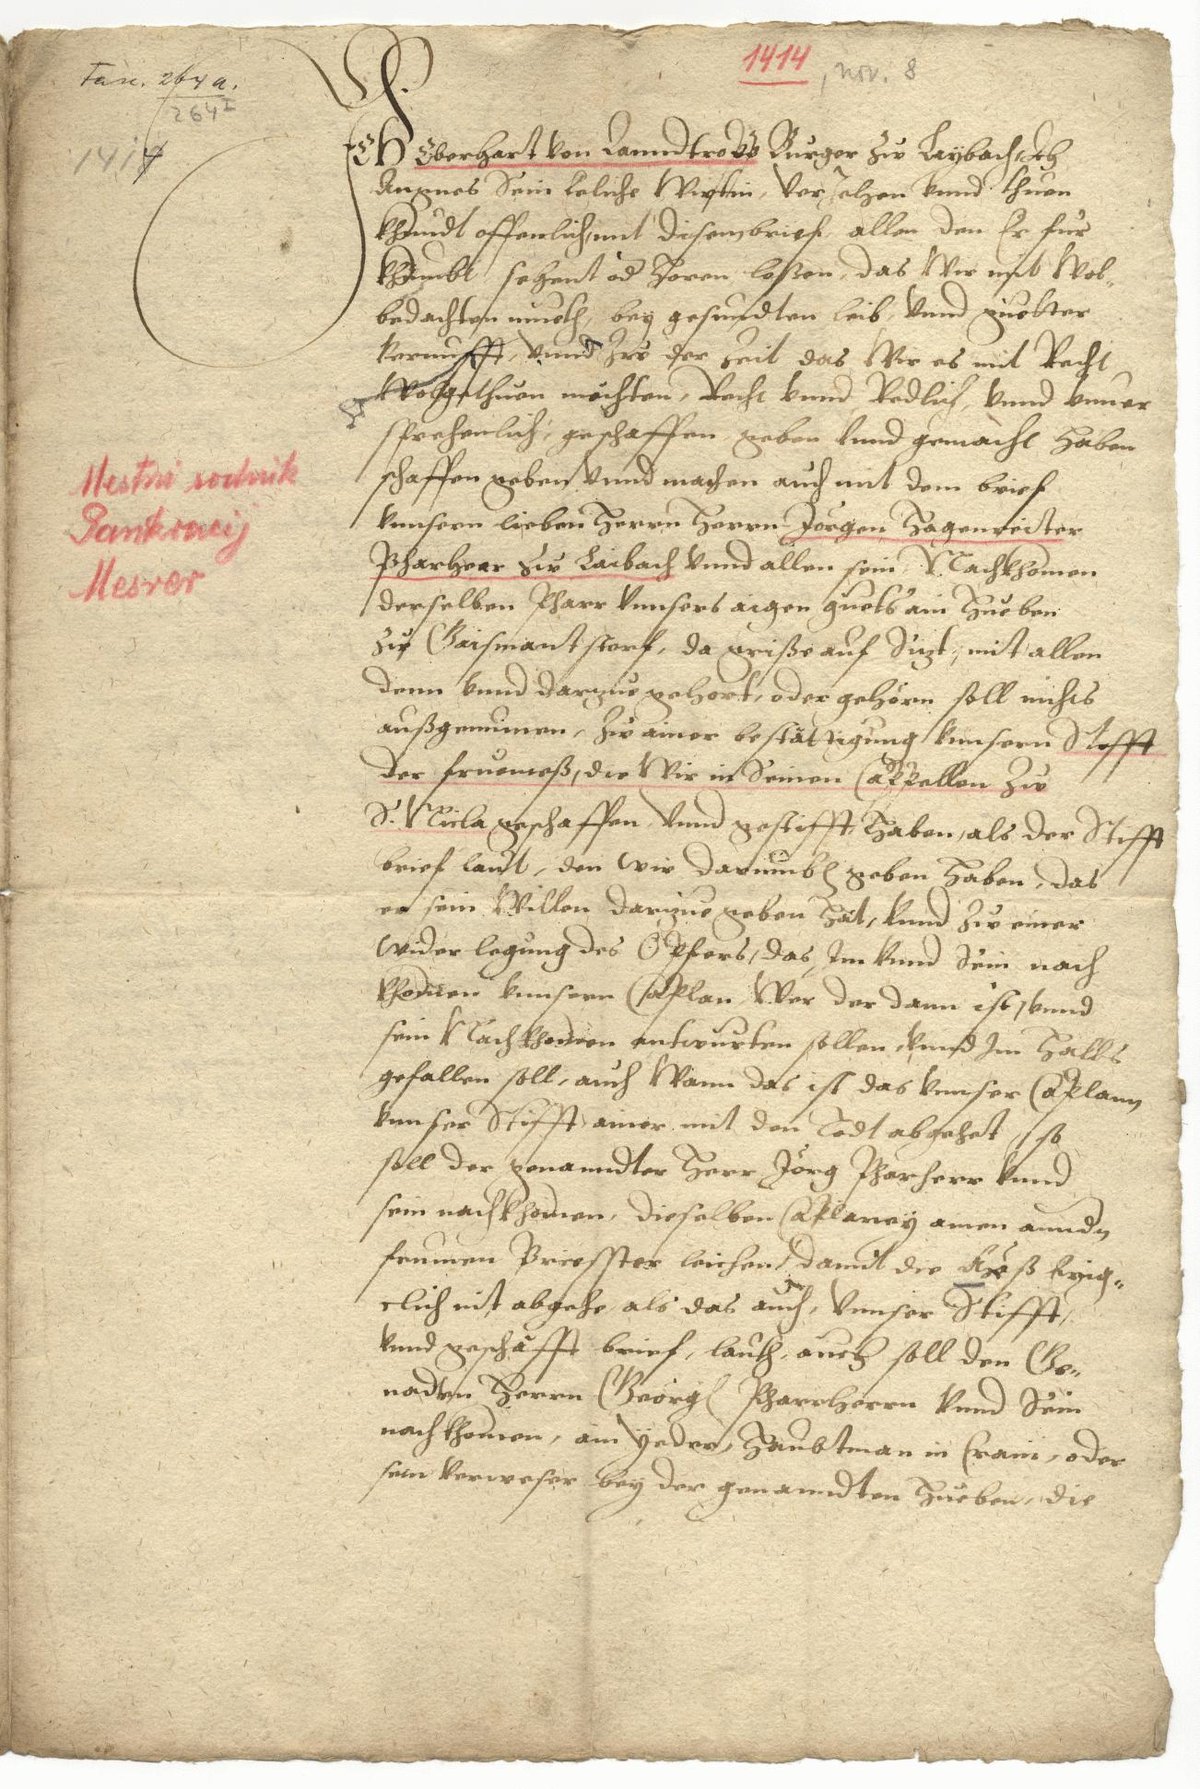 1414, nov. 8
Fasc. 264 a.
264 I
1414
ICH Eberhart von Lanndtrobs Burger Zue Laybach, Ich
Angnes Sein Eeliche Wirtin, Verjehen vnnd thuen
khundt offenlich, mit disem brief, allen den Er für
khumbt sehent od Horen leßen, das Wir mit Wol-
bedachten mueth, bey gesundten leib, Vnnd gueter
vernunfft, Vnnd Zue der Zeit das Wir es mit Recht
Wolgethuen möchten, Recht Vnnd Redlich, Vnnd Vnuer
sprechenlich, geschaffen geben Vnnd gemacht haben
schaffen geben Vnnd machen auch mit dem brief
Vnnsern lieben Herrn Herrn Jörgen Hagenreiter
Pharherr Zue Laibach Vnnd allen sein Nachkhomen
derselben Pharr Vnnsers aigen guets ain Hueben
Zue Gaismanstorf, da  auf Sizt, mit allen
denn Vnnd darzue gehort, oder gehörn soll nichts
außgenumen, Zue ainer bestättigung Vnnsern Stifft
der fruemeß, die Wir in Seinen Cappellen Zue
S. Nicla geschaffen Vnnd gestifft haben, als der Stifft
brief laut, den wir darumb geben haben, das
er sein Willen darzue geben hat, Vnnd Zue einer
wider legung des Opfers, das Im Vnnd Sein nach
khomen Vnnsern Caplan Wer der dann ist, Vnnd
sein Nachkhomen antwurten sollen Vnnd Im Halbs
gefallen soll, auch Wann das ist das Vnnser Caplann
Vnnser Stifft ainer mit den Todt abgehet, so
soll der genanndter Herr Jörg Pharherr Vnnd
sein nachkhomen, dieselben Caplaney ainen anndn
frumen Priesster leichen, damit die Meß Ewig-
clich nit abgehe, als das auch, Vnnser Stifft,
Vnnd geschäfft brief, lauth, auch soll den Ge-
nadten Herrn Georg Pharrherrn Vnnd Sein
nachkhomen, ain yeder Haubtman in Crain, oder
sein Verweser bey der genanndten Hueben, die
Mestni sodnik
Pankracij
Mesrer